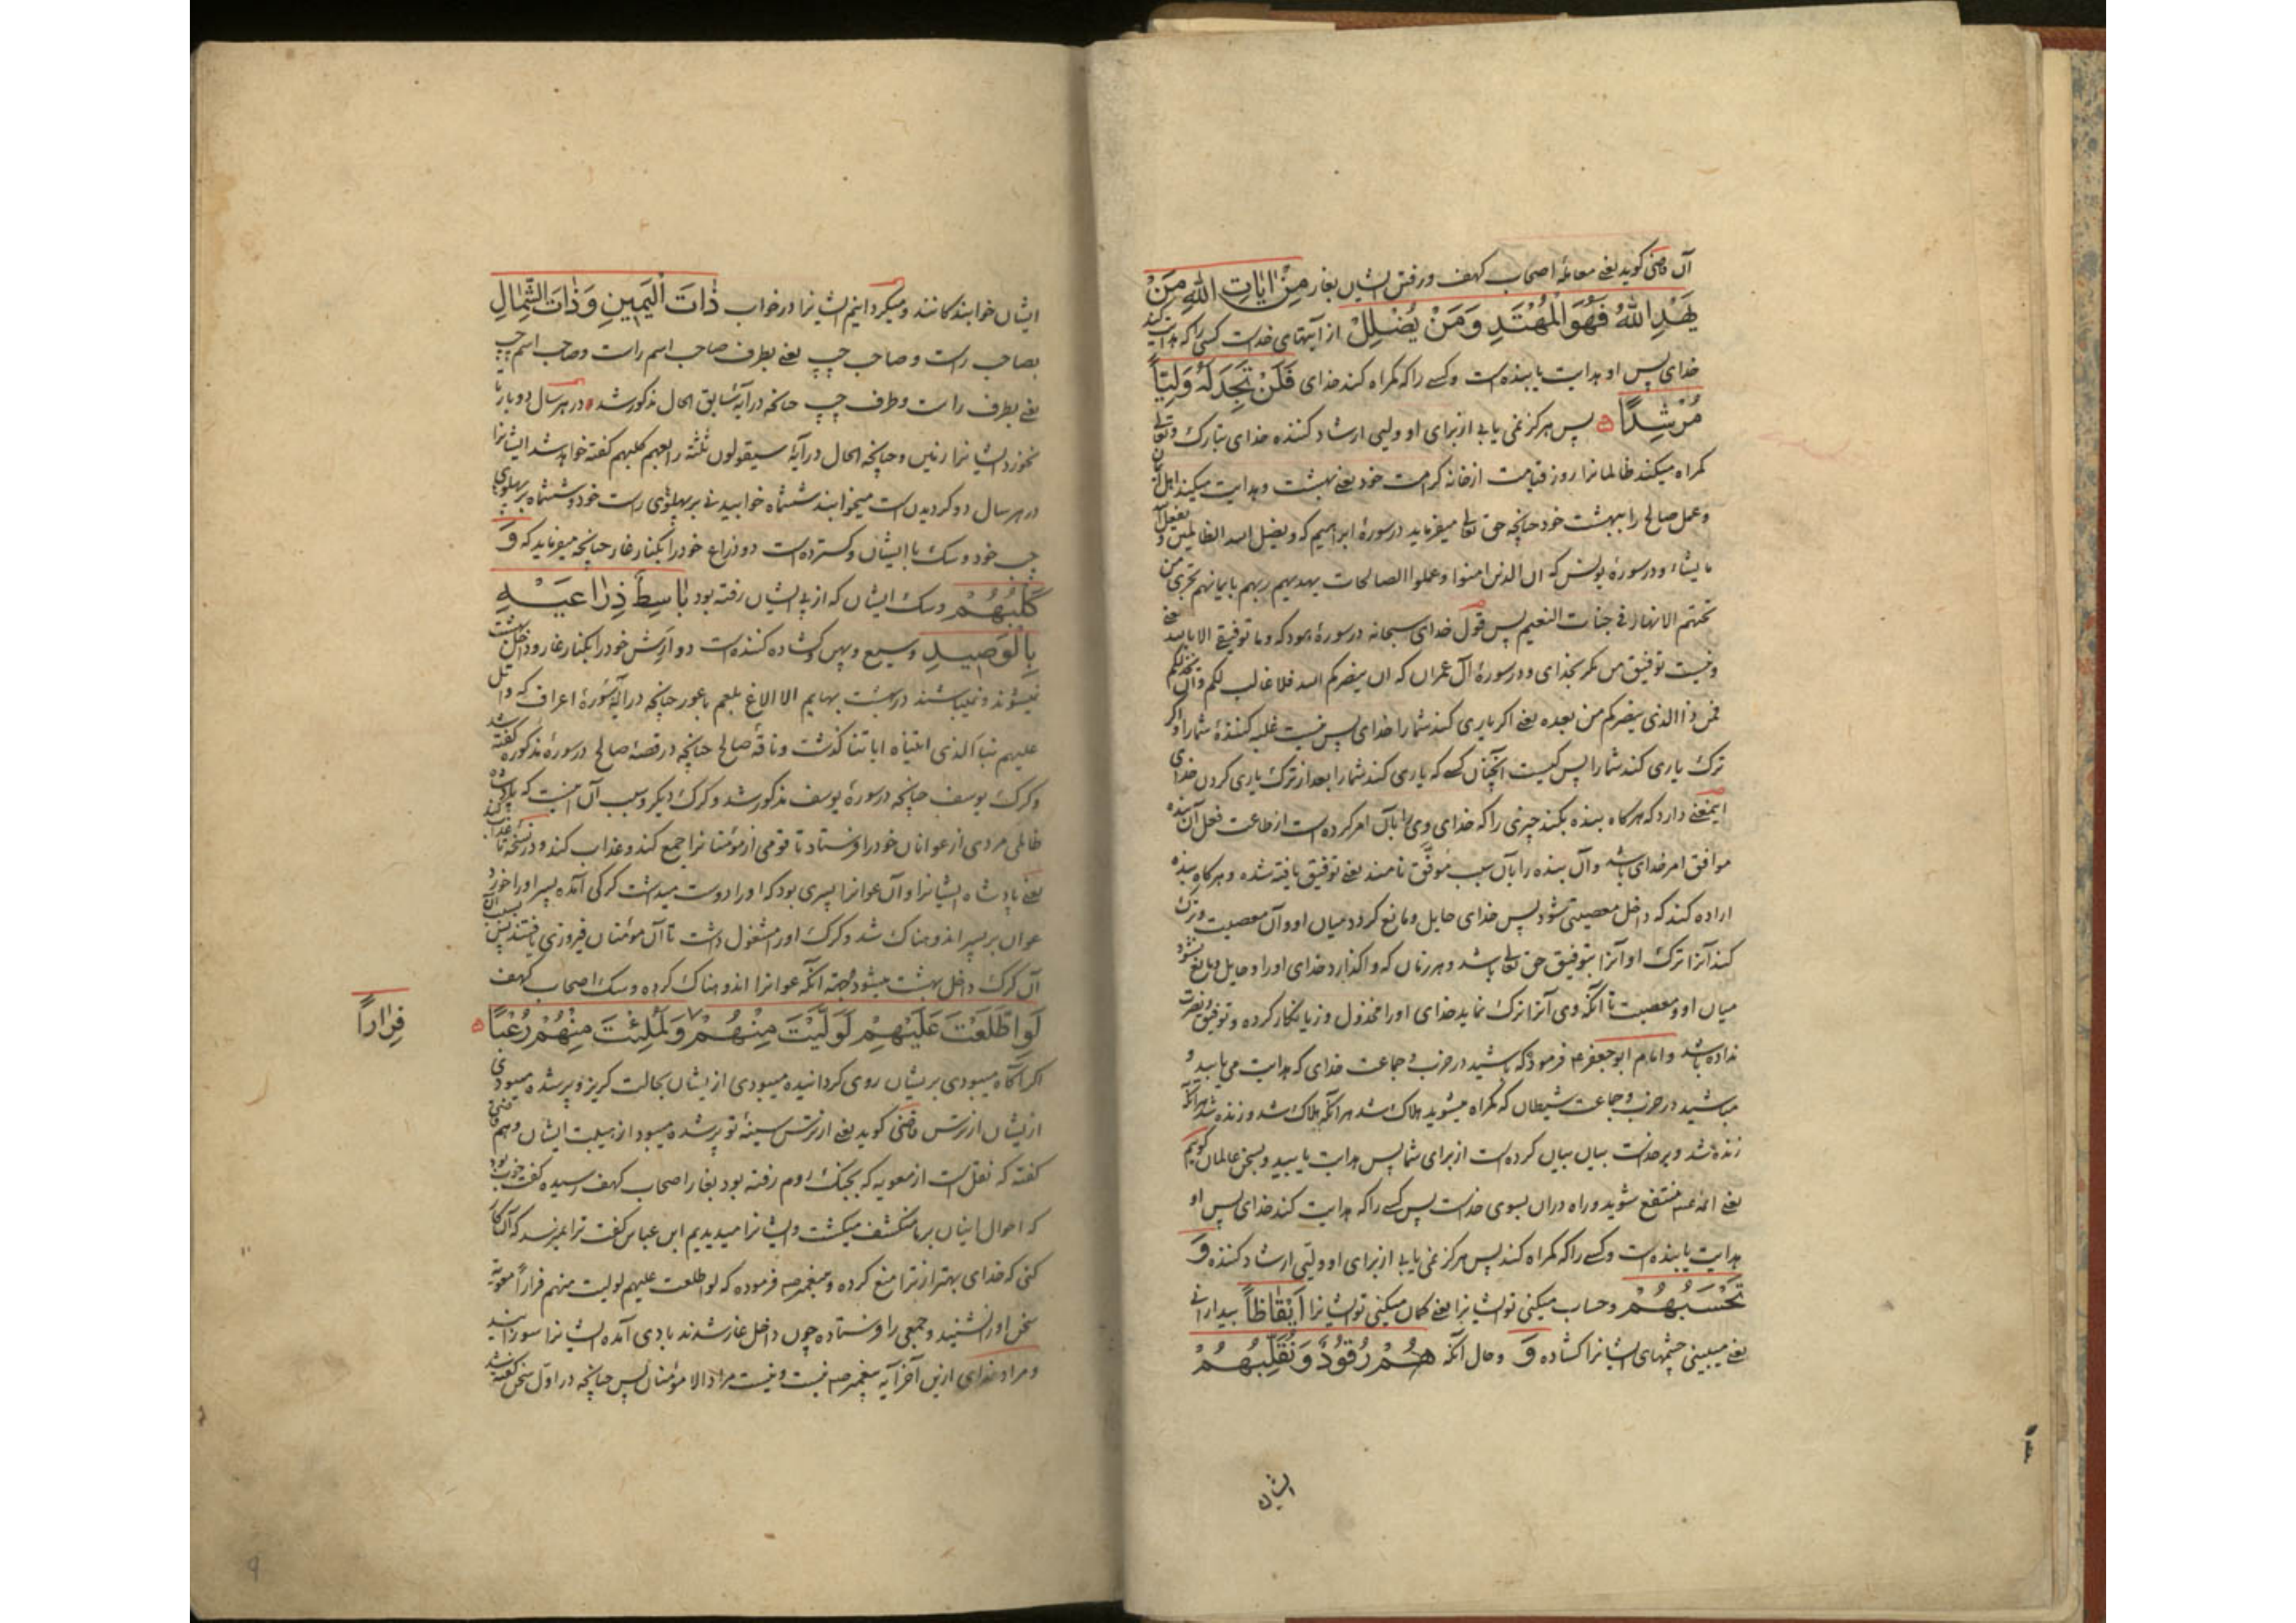 آن قاضی کوید یعنے معاملهٔ اصحاب کهف و رفتن ایشان بغار مِنْ اٰیَاتِ اللّٰهِ مَنْ
یَهْدِ اللّٰهُ فَهُوَ الْمُهْتَدِ وَمَنْ یُضْلِلْ از آیتهای خداست کسی را که هدایت کند
خدای پس او هدایت یابنده است و کسے را که کمراه کند خدای فَلَنْ تَجِدَ لَهُ وَلِیّاً
مُرْشِدًا پس هرکز نمی یابے از برای او ولیی ارشاد کننده خدای تبارک وتعالے
کمراه میکند ظالمانرا روز قیامت از خانه کرامت خود یعنے بهشت و هدایت میکند اهل ایمان
و عمل صالح را ببهشت خود چنانچه حق تعالے میفرماید در سورهٔ ابراهیم که ویضل الله الظالمین و یفعل الله
ما یشاء و در سورهٔ یونس که ان الذین امنوا وعملوا الصالحات یهدیهم ربهم بایمانهم تجری من
تحتهم الانهار فے جنات النعیم پس قول خدای سبحانه در سورهٔ هود که وما توفیقے الا بالله یعنے
و نیست توفیق من مکر بخدای و در سورهٔ آل عمران که ان ینصرکم الله فلا غالب لکم وان یخذلکم
فمن ذا الذی ینصرکم من بعده یعنے اکر یاری کند شما را خدای پس نیست غلبه کنندهٔ شما را و اکر
ترک یاری کند شما را پس کیست آنچنان کسے که یاری کند شما را بعد از ترک یاری کردن خدای
اینمعنے دارد که هرکاه بنده بکند چیزی را که خدای وی را بآن امر کرده است از طاعت فعل آن بنده
موافق امر خدای باشد و آن بنده را بآن سبب موفّق نامند یعنے توفیق یافته شده و هرکاه بنده
اراده کند که داخل معصیتی شود پس خدای حایل و مانع کردد میان او و آن معصیت و ترک
کند آنرا ترک او آنرا بتوفیق حق تعالے باشد و هر زمان که واکذارد خدای او را و حایل و مانع نشود
میان او و معصیت تا آنکه وی آنرا ترک نماید خدای او را مخذول و زیانکار کرده و توفیق و نصرت
نداده باشد و امام ابو جعفر ع فرمود که باشید در حزب و جماعت خدای که هدایت می یابید و
مباشید در حزب و جماعت شیطان که کمراه میشوید هلاک شد هر آنکه هلاک شد و زنده شد هر آنکه
زنده شد و بر خداست بیان بیان کرده است از برای شما پس هدایت یابید و بسخن عالمان کویم
یعنے ائمه منتفع شوید و راه در آن بسوی خداست پس کسے را که هدایت کند خدای پس او
هدایت یابنده است و کسے را که کمراه کند پس هرکز نمی یابے از برای او ولیّی ارشاد کننده وَ
تَحْسَبُهُمْ و حساب میکنی تو ایشانرا یعنے کمان میکنی تو ایشانرا اَیْقَاظاً بیدارانے
یعنے میبینی چشمهای ایشانرا کشاده وَ و حال آنکه هُمْ رُقُودٌ وَنُقَلِّبُهُمْ
ایشان
ایشان خوابندکانند و میکردانیم ایشانرا در خواب ذَاتَ الْیَمِینِ وَذَاتَ الشِّمَالِ
بصاحب راست و صاحب چپ یعنے بطرف صاحب اسم راست و صاحب اسم چپ
یعنے بطرف راست و طرف چپ چنانچه در آیهٔ سابق الحال مذکور شد در هر سال دو بار تا
نخورد ایشانرا زمین و چنانچه الحال در آیهٔ سیقولون ثلثة رابعهم کلبهم کفته خواهد شد ایشانرا
در هر سال دو کردیدن است میخوابند ششماه خوابیدنے بر پهلوی راست خود و ششماه بر پهلوی
چپ خود و سک با ایشان و کسترده است دو ذراع خود را بکنار غار چنانچه میفرماید که وَ
کَلْبُهُمْ و سک ایشان که از پے ایشان رفته بود بَاسِطٌ ذِرَاعَیْهِ
بِالْوَصِیدِ وسیع و پهن و کشاده کننده است دو ارش خود را بکنار غار و داخل بهشت
نمیشوند و نمیباشند در بهشت بهایم الا الاغ بلعم باعور چنانچه در آیهٔ سورهٔ اعراف که واتل
علیهم نبأ الذی اتیناه ایاتنا کذشت و ناقهٔ صالح چنانچه در قصهٔ صالح در سورهٔ مذکوره کفته شد
و کرک یوسف چنانچه در سورهٔ یوسف مذکور شد و کرک دیکر و سبب آن اینست که پادشاه
ظالمی مردی از عوانان خود را فرستاد تا قومی از مؤمنانرا جمع کند و عذاب کند و در نسخه تا عذاب کند
یعنے پادشاه ایشانرا و آن عوانرا پسری بود که او را دوست میداشت کرکی آمده پسر او را خورد
عوان بر پسر اندوهناک شد و کرک او را مشغول داشت تا آن مؤمنان فیروزی یافتند پس بسبب آن
آن کرک داخل بهشت میشود بجهة آنکه عوانرا اندوهناک کرده و سک اصحاب کهف
لَوِ اطَّلَعْتَ عَلَیْهِمْ لَوَلَّیْتَ مِنْهُمْ وَلَمُلِئْتَ مِنْهُمْ رُعْباً
فِرَاراً
اکر آکاه میبودی بر ایشان روی کردانیده میبودی از ایشان بحالت کریز و پر شده میبودی
از ایشان از ترس قاضی کوید یعنے از ترس سینهٔ تو پر شده میبود از هیبت ایشان و هم قاضی
کفته که نقل است از معویه که بجنک روم رفته بود بغار اصحاب کهف رسیده کفت خوب بود
که احوال اینان بر ما منکشف میکشت و ایشانرا میدیدیم ابن عباس کفت ترا نمیرسد که آن کار
کنی که خدای بهتر از ترا منع کرده و پیغمبر ص فرموده که لو اطلعت علیهم لولیت منهم فراراً معویه
سخن او را نشنید و جمعی را فرستاده چون داخل غار شدند بادی آمده ایشانرا سوزانید
و مراد خدای ازین آخر آیه پیغمبر ص نیست و نیست مراد الا مؤمنان پس چنانچه در اول سخن کفته شد
9